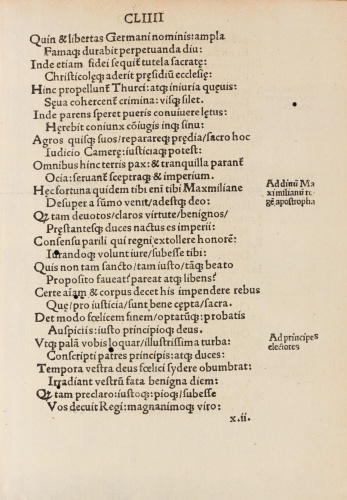 CLIIII
Quin & libertas Germani nominis: ampla
Famaq; durabit perpetuanda diu:
Inde etiam fidei sequit̃ tutela sacratę:
Christicolęq; aderit pręsidiũ ecclesię:
Hinc propellunt̃ Thurci: atq; iniuria quęuis:
Sęua cohercent̃ crimina: visq; silet.
Inde parens speret pueris conuiuere lętus:
Hęrebit coniunx cõiugis inq; sinu:
Agros quisq; suos/reparareq; prędia/sacro hoc
Iudicio Camerę: iusticiaq; potest:
Omnibus hinc terris pax: & tranquilla parant̃
Ocia: seruant̃ sceptraq; & imperium.
Hęc fortuna quidem tibi eni tibi Maxmiliane
Desuper a sũmo venit/adestq; deo:
Q; tam deuotos/claros virtute/benignos/
Pręstantesq; duces nactus es imperii:
Consensu parili qui regni extollere honorẽ:
Iurandoq; volunt iure/subesse tibi:
Quis non tam sancto/tam iusto/tãq; beato
Proposito faueat? pareat atq; libens?
Certe aĩam & corpus decet his impendere rebus
Quę/pro iusticia/sunt bene cępta/sacra.
Det modo fœlicem finem/optatũq;: probatis
Auspiciis: iusto principioq; deus.
Vtq; palã vobis loquar/illustrissima turba:
Conscripti patres principis: atq; duces:
Tempora vestra deus fœlici sydere obumbrat:
Irradiant vestrũ fata benigna diem:
Q; tam preclaro: iustoq;: pioq;/subesse
Vos decuit Regi: magnanimoq; viro:
x.ii.
Ad diuũ Ma
ximilianũ re
gẽ apostropha
Ad principes
electores